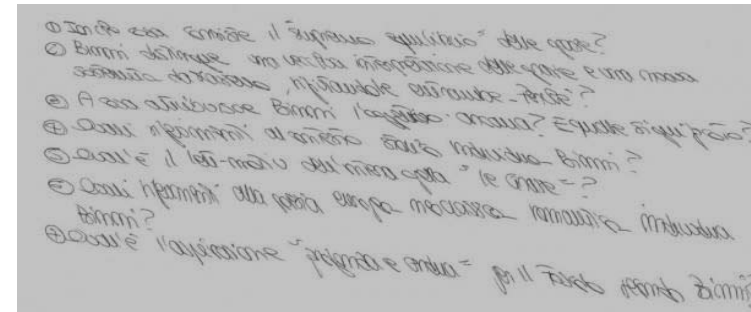 ① In che cosa consiste il "supremo equilibrio" delle opere?
② Binni distingue una vecchia interpretazione delle opere e una nuova
, rifiutandole entrambe. Perché?
③ A cosa attribuisce Binni l'aggettivo ? E quale significato?
④ Quali riferimenti al contesto individua Binni?
⑤ Qual'è il leit-motiv dell'intera opera "le ?
⑥ Quali riferimenti alla poesia europea neoclassica romantica individua
Binni?
⑦ Qual'è l'aspirazione "profonda e " per il Foscolo secondo Binni?